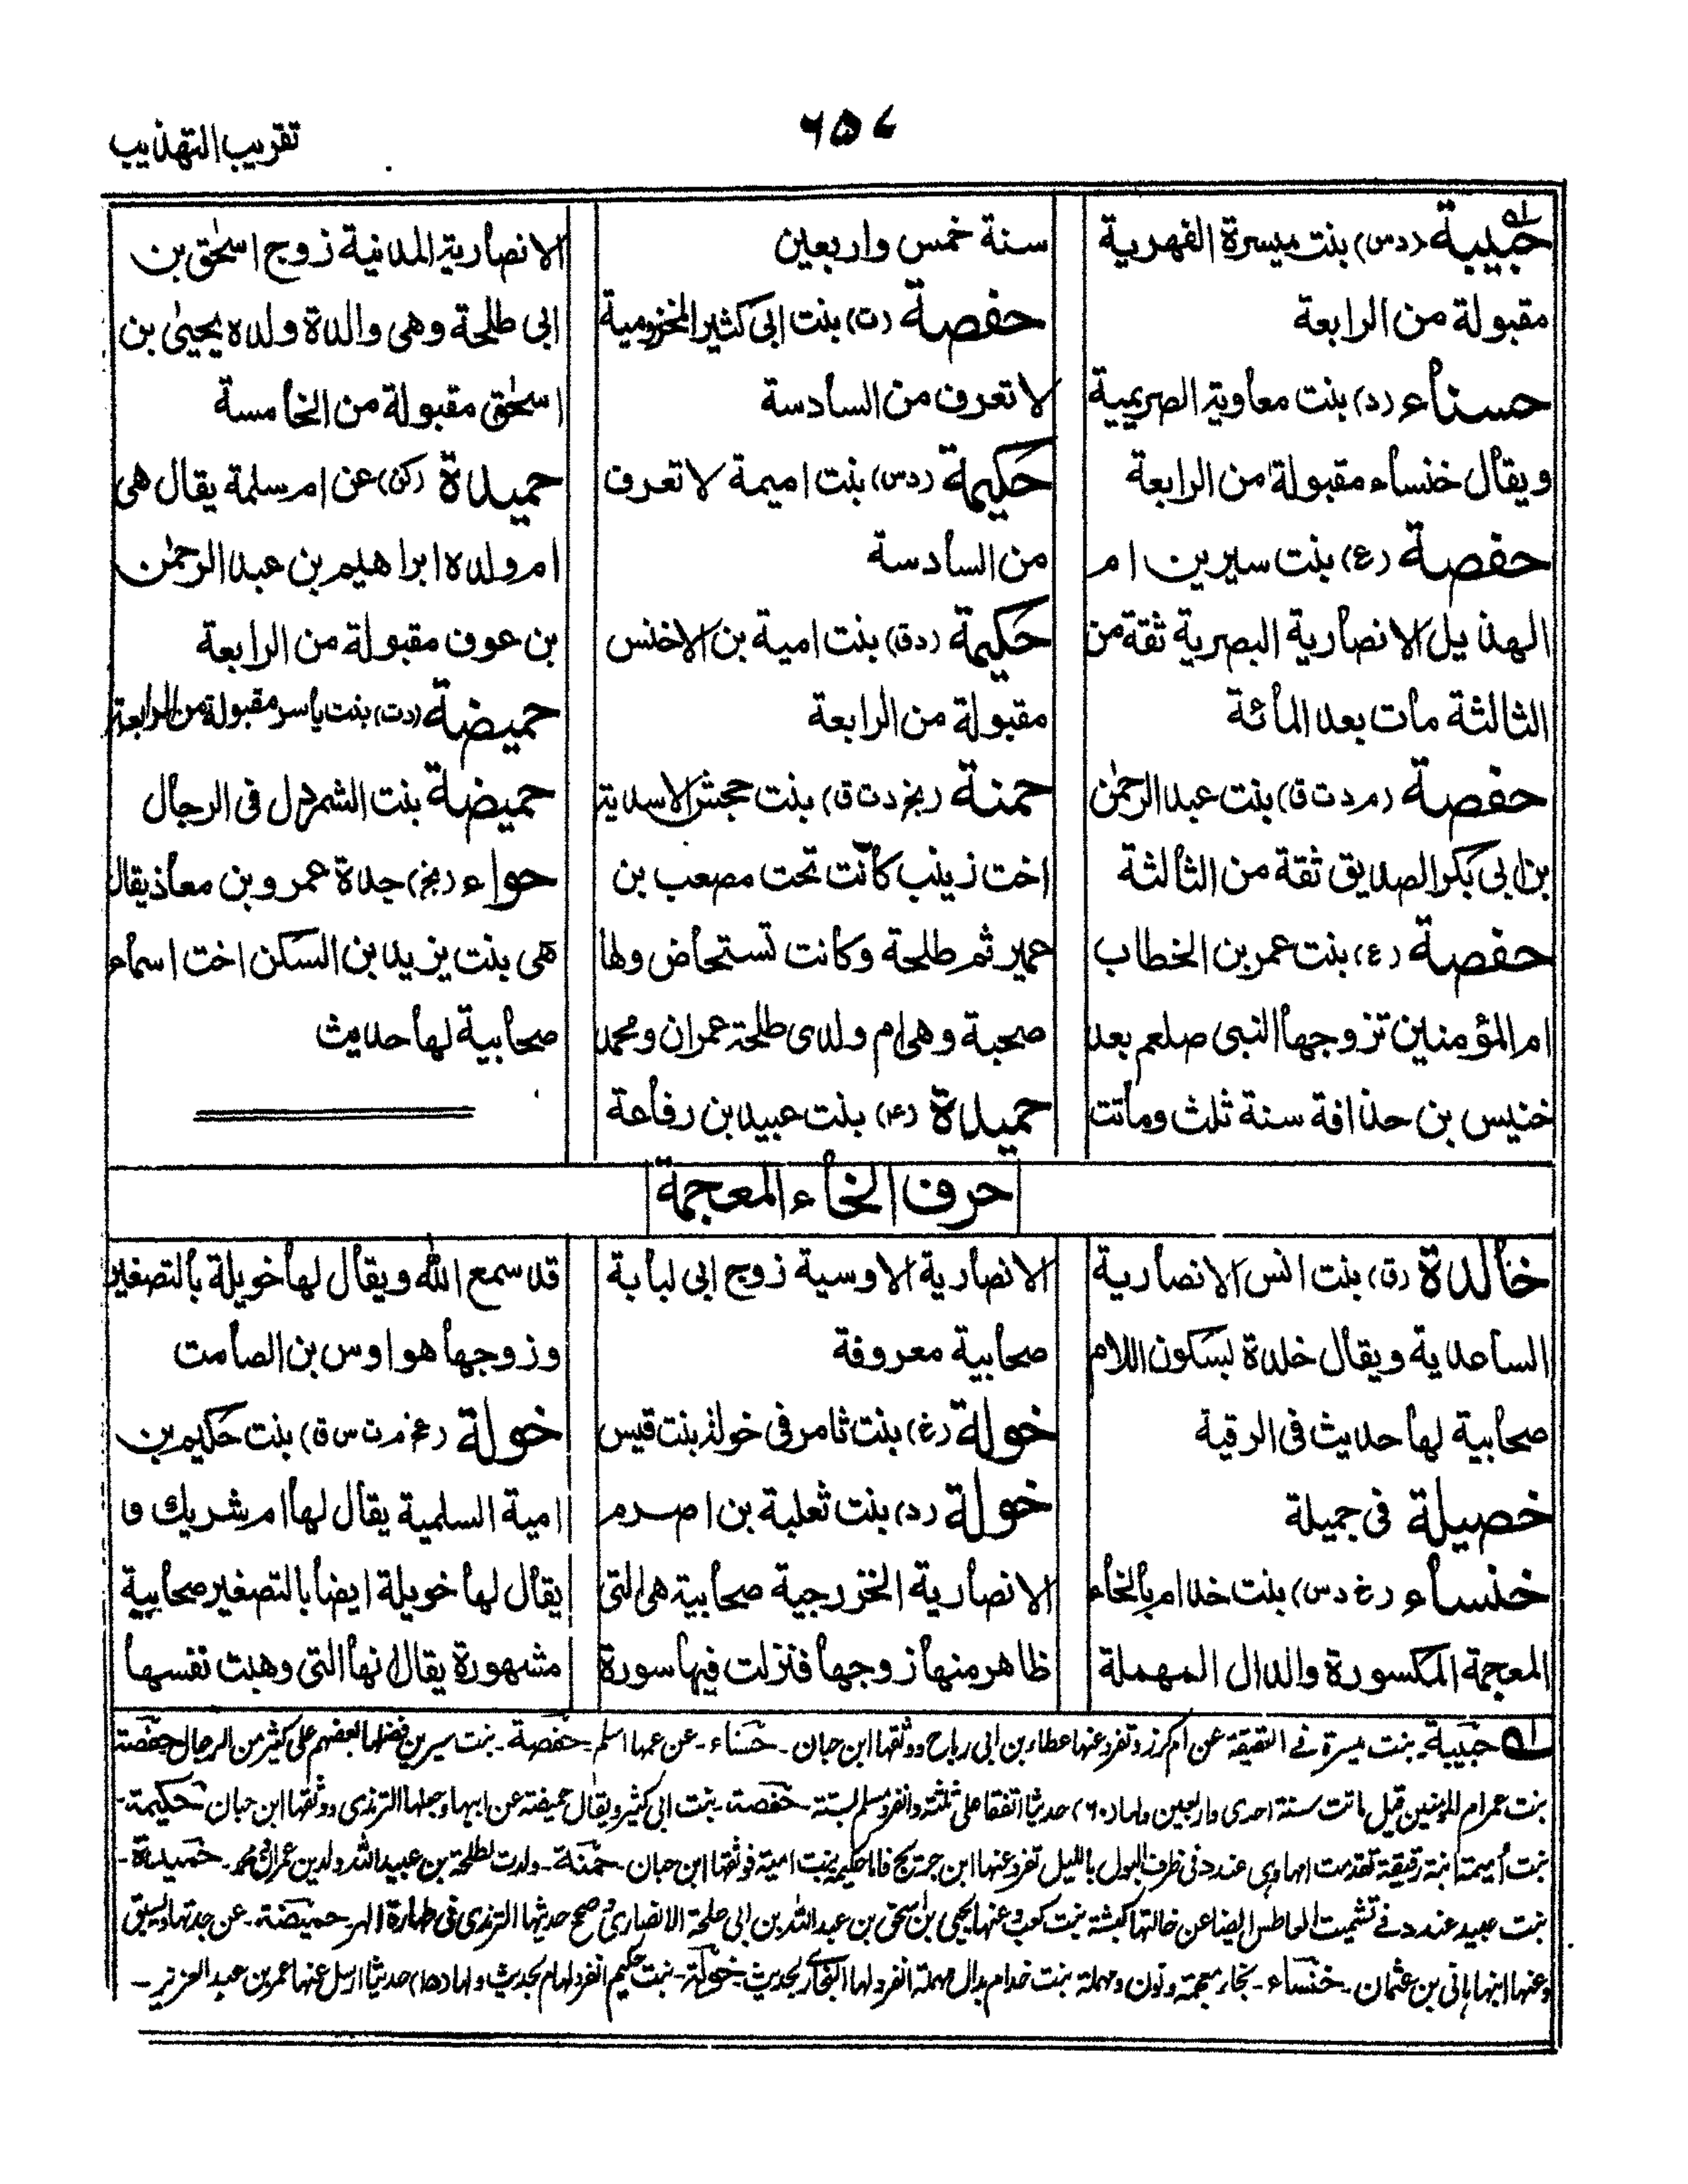 تقريب التهذيب
٦٥٧
حبيبة (دس) بنت ميسرة الفهرية
مقبولة من الرابعة
حسناء (د) بنت معاوية الصريمية
ويقال خنساء مقبولة من الرابعة
حفصة (ع) بنت سيرين ام
الهذيل الانصارية البصرية ثقة من
الثالثة مات بعد المائة
حفصة (م د ت ق) بنت عبد الرحمٰن
بن ابى بكر الصديق ثقة من الثالثة
حفصة (ع) بنت عمر بن الخطاب
ام المؤمنين تزوجها النبى صلعم بعد
خنيس بن حذافة سنة ثلث وماتت
سنة خمس واربعين
حفصة (ت) بنت ابى كثير المخزومية
لا تعرف من السادسة
حكيمة (دس) بنت اميمة لا تعرف
من السادسة
حكيمة (دق) بنت امية بن الاخنس
مقبولة من الرابعة
حمنة (بخ د ت ق) بنت جحش الاسدية
اخت زينب كانت تحت مصعب بن
عمير ثم طلحة وكانت تستحاض ولها
صحبة وهى ام ولدى طلحة عمران ومحمد
حميدة (عه) بنت عبيد بن رفاعة
الانصارية المدنية زوج اسحٰق بن
ابى طلحة وهى والدة ولده يحيىٰ بن
اسحٰق مقبولة من الخامسة
حميدة (كن) عن ام سلمة يقال هى
ام ولده ابراهيم بن عبد الرحمٰن
بن عوف مقبولة من الرابعة
حميضة (دت) بنت ياسر مقبولة من الرابعة
حميضة بنت الشمردل فى الرجال
حواء (بخ) جدة عمرو بن معاذ يقال
هى بنت يزيد بن السكن اخت اسماء
صحابية لها حديث
حرف الخاء المعجمة
خالدة (ق) بنت انس الانصارية
الساعدية ويقال خلدة بسكون اللام
صحابية لها حديث فى الرقية
خصيلة فى جميلة
خنساء (خ دس) بنت خدام بالخاء
المعجمة المكسورة والدال المهملة
الانصارية الاوسية زوج ابى لبابة
صحابية معروفة
خولة (خ) بنت ثامر فى خولة بنت قيس
خولة (د) بنت ثعلبة بن اصرم
الانصارية الخزرجية صحابية هى التى
ظاهر منها زوجها فنزلت فيها سورة
قد سمع الله ويقال لها خويلة بالتصغير
وزوجها هو اوس بن الصامت
خولة (عخ م ت س ق) بنت حكيم بن
امية السلمية يقال لها ام شريك و
يقال لها خويلة ايضا بالتصغير صحابية
مشهورة يقال انها التى وهبت نفسها
له حبيبة۔ بنت ميسرة فے العقيقة عن ام كرز وتفرد عنها عطاء بن ابى رباح ووثقها ابن حبان۔ حسناء۔ عن عمها اسلم۔ حفصة۔ بنت سيرين فضلها بعضهم على كثير من الرجال حفصة
بنت عمر ام المؤمنين قيل ماتت سنة احدى واربعين ولها (٦٠) حديثا اتفقا على ثلثة وانفرد مسلم بستة۔ حفصة۔ بنت ابى كثير ويقال حميضة عن ابيها وجهلها الترمذى ووثقها ابن حبان۔ حكيمة۔
بنت أميمة ابنة رقيقة تقدمت امها وهى عند د فى ظرف البول بالليل تفرد عنها ابن جريج فاما حكيمة بنت امية فوثقها ابن حبان۔ حمنة۔ ولدت لطلحة بن عبيد الله ولدين عمران ومحمد۔ حميدة۔
بنت عبيد عند د فے تشميت العاطس ايضا عن خالتها كبشة بنت كعب وعنها يحيى بن اسحق بن عبد الله بن ابى طلحة الانصارى وصحح حديثها الترمذى فى طهارة الهر۔ حميضة۔ عن جدتها
وعنها ابنها هانى بن عثمان۔ خنساء۔ بخاء معجمة ونون ومهملة بنت خدام بدال مهملة انفرد لها البخارى بحديث۔ خولة۔ بنت حكيم انفرد لها م بحديث ولها (١٥) حديثا ارسل عنها عمر بن عبد العزيز۔